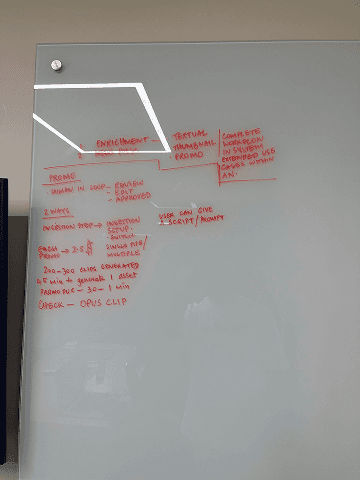 1. ENRICHMENT — TEXTUAL
2.
THUMBNAIL
PROMO
COMPLETE
WORKFLOW
IN SYSTEM
EXTENDED USE
CASES WITHIN
AN
PROMO
HUMAN IN LOOP - REVIEW
- EDIT
- APPROVED
2 WAYS
INGESTION STEP → INGESTION
SETUP
USER CAN GIVE
A SCRIPT/PROMPT
PROMO → 2-5
SINGLE
MULTIPLE
200-300 CLIPS GENERATED
45 min to generate 1 asset
30 - 1 min
CHECK - OPUS CLIP